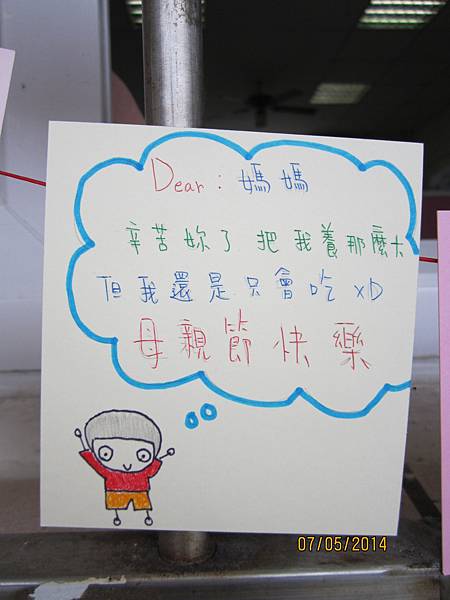 Dear: 媽媽
辛苦妳了 把我養那麼大
但我還是只會吃 xD
母親節快樂
07/05/2014